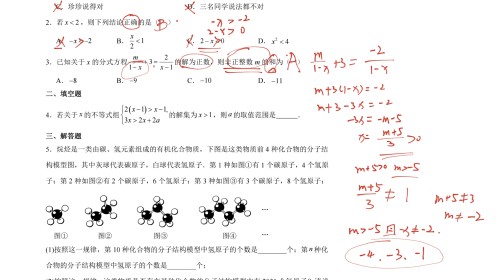 C. 珍珍说得对 D. 三名同学说法都不对
2. 若 x < 2，则下列结论正确的是（ B ）
-x > -2
2-x > 0
A. -x > -2 B. x/2 < 1 C. 2 - x > 0 D. x² < 4
3. 已知关于 x 的分式方程 m/(1-x) + 3 = 2/(x-1) 的解为正数，则非正整数 m 的和为（ A
A. -8 B. -9 C. -10 D. -11
二、填空题
4. 若关于 x 的不等式组 {2(x-1) > x-1, 3x > 2x+2a 的解集为 x > 1，则 a 的取值范围是______.
三、解答题
5. 烷烃是一类由碳、氢元素组成的有机化合物质，下图是这类物质前 4 种化合物的分子结
构模型图，其中灰球代表碳原子，白球代表氢原子．第 1 种如图①有 1 个碳原子，4 个氢原
子；第 2 种如图②有 2 个碳原子，6 个氢原子；第 3 种如图③有 3 个碳原子，8 个氢原子；
...
图① 图② 图③ 图④ ...
(1)按照这一规律，第 10 种化合物的分子结构模型中氢原子的个数是______个；第 n 种化
合物的分子结构模型中氢原子的个数是______个；
m/(1-x) + 3 = -2/(1-x)
m+3(1-x) = -2
m+3-3x = -2
-3x = -m-5
x = (m+5)/3 > 0
m+5>0 m>-5
(m+5)/3 ≠ 1
m+5≠3
m ≠ -2
m>-5 且 x ≠ -2.
-4、-3、-1